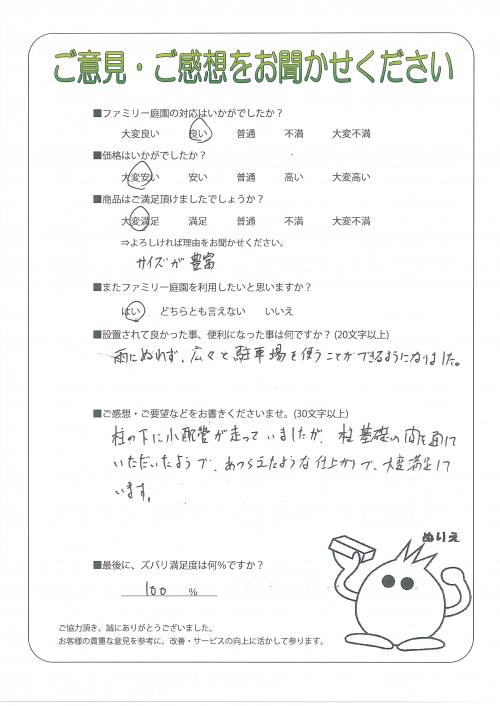 ご意見・ご感想をお聞かせください
■ファミリー庭園の対応はいかがでしたか？
大変良い 良い 普通 不満 大変不満
■価格はいかがでしたか？
大変安い 安い 普通 高い 大変高い
■商品はご満足頂けましたでしょうか？
大変満足 満足 普通 不満 大変不満
⇒よろしければ理由をお聞かせください。
サイズが豊富
■またファミリー庭園を利用したいと思いますか？
はい どちらとも言えない いいえ
■設置されて良かった事、便利になった事は何ですか？(20文字以上)
雨にぬれず、広々と駐車場を使うことができるようになりました。
■ご感想・ご要望などをお書きくださいませ。(30文字以上)
柱の下に小配管が走っていましたが、柱基礎の間を通して
いただいたようで、あつらえたような仕上がりで、大変満足して
います。
ぬりえ
■最後に、ズバリ満足度は何%ですか？
100 %
ご協力頂き、誠にありがとうございました。
お客様の貴重な意見を参考に、改善・サービスの向上に活かして参ります。